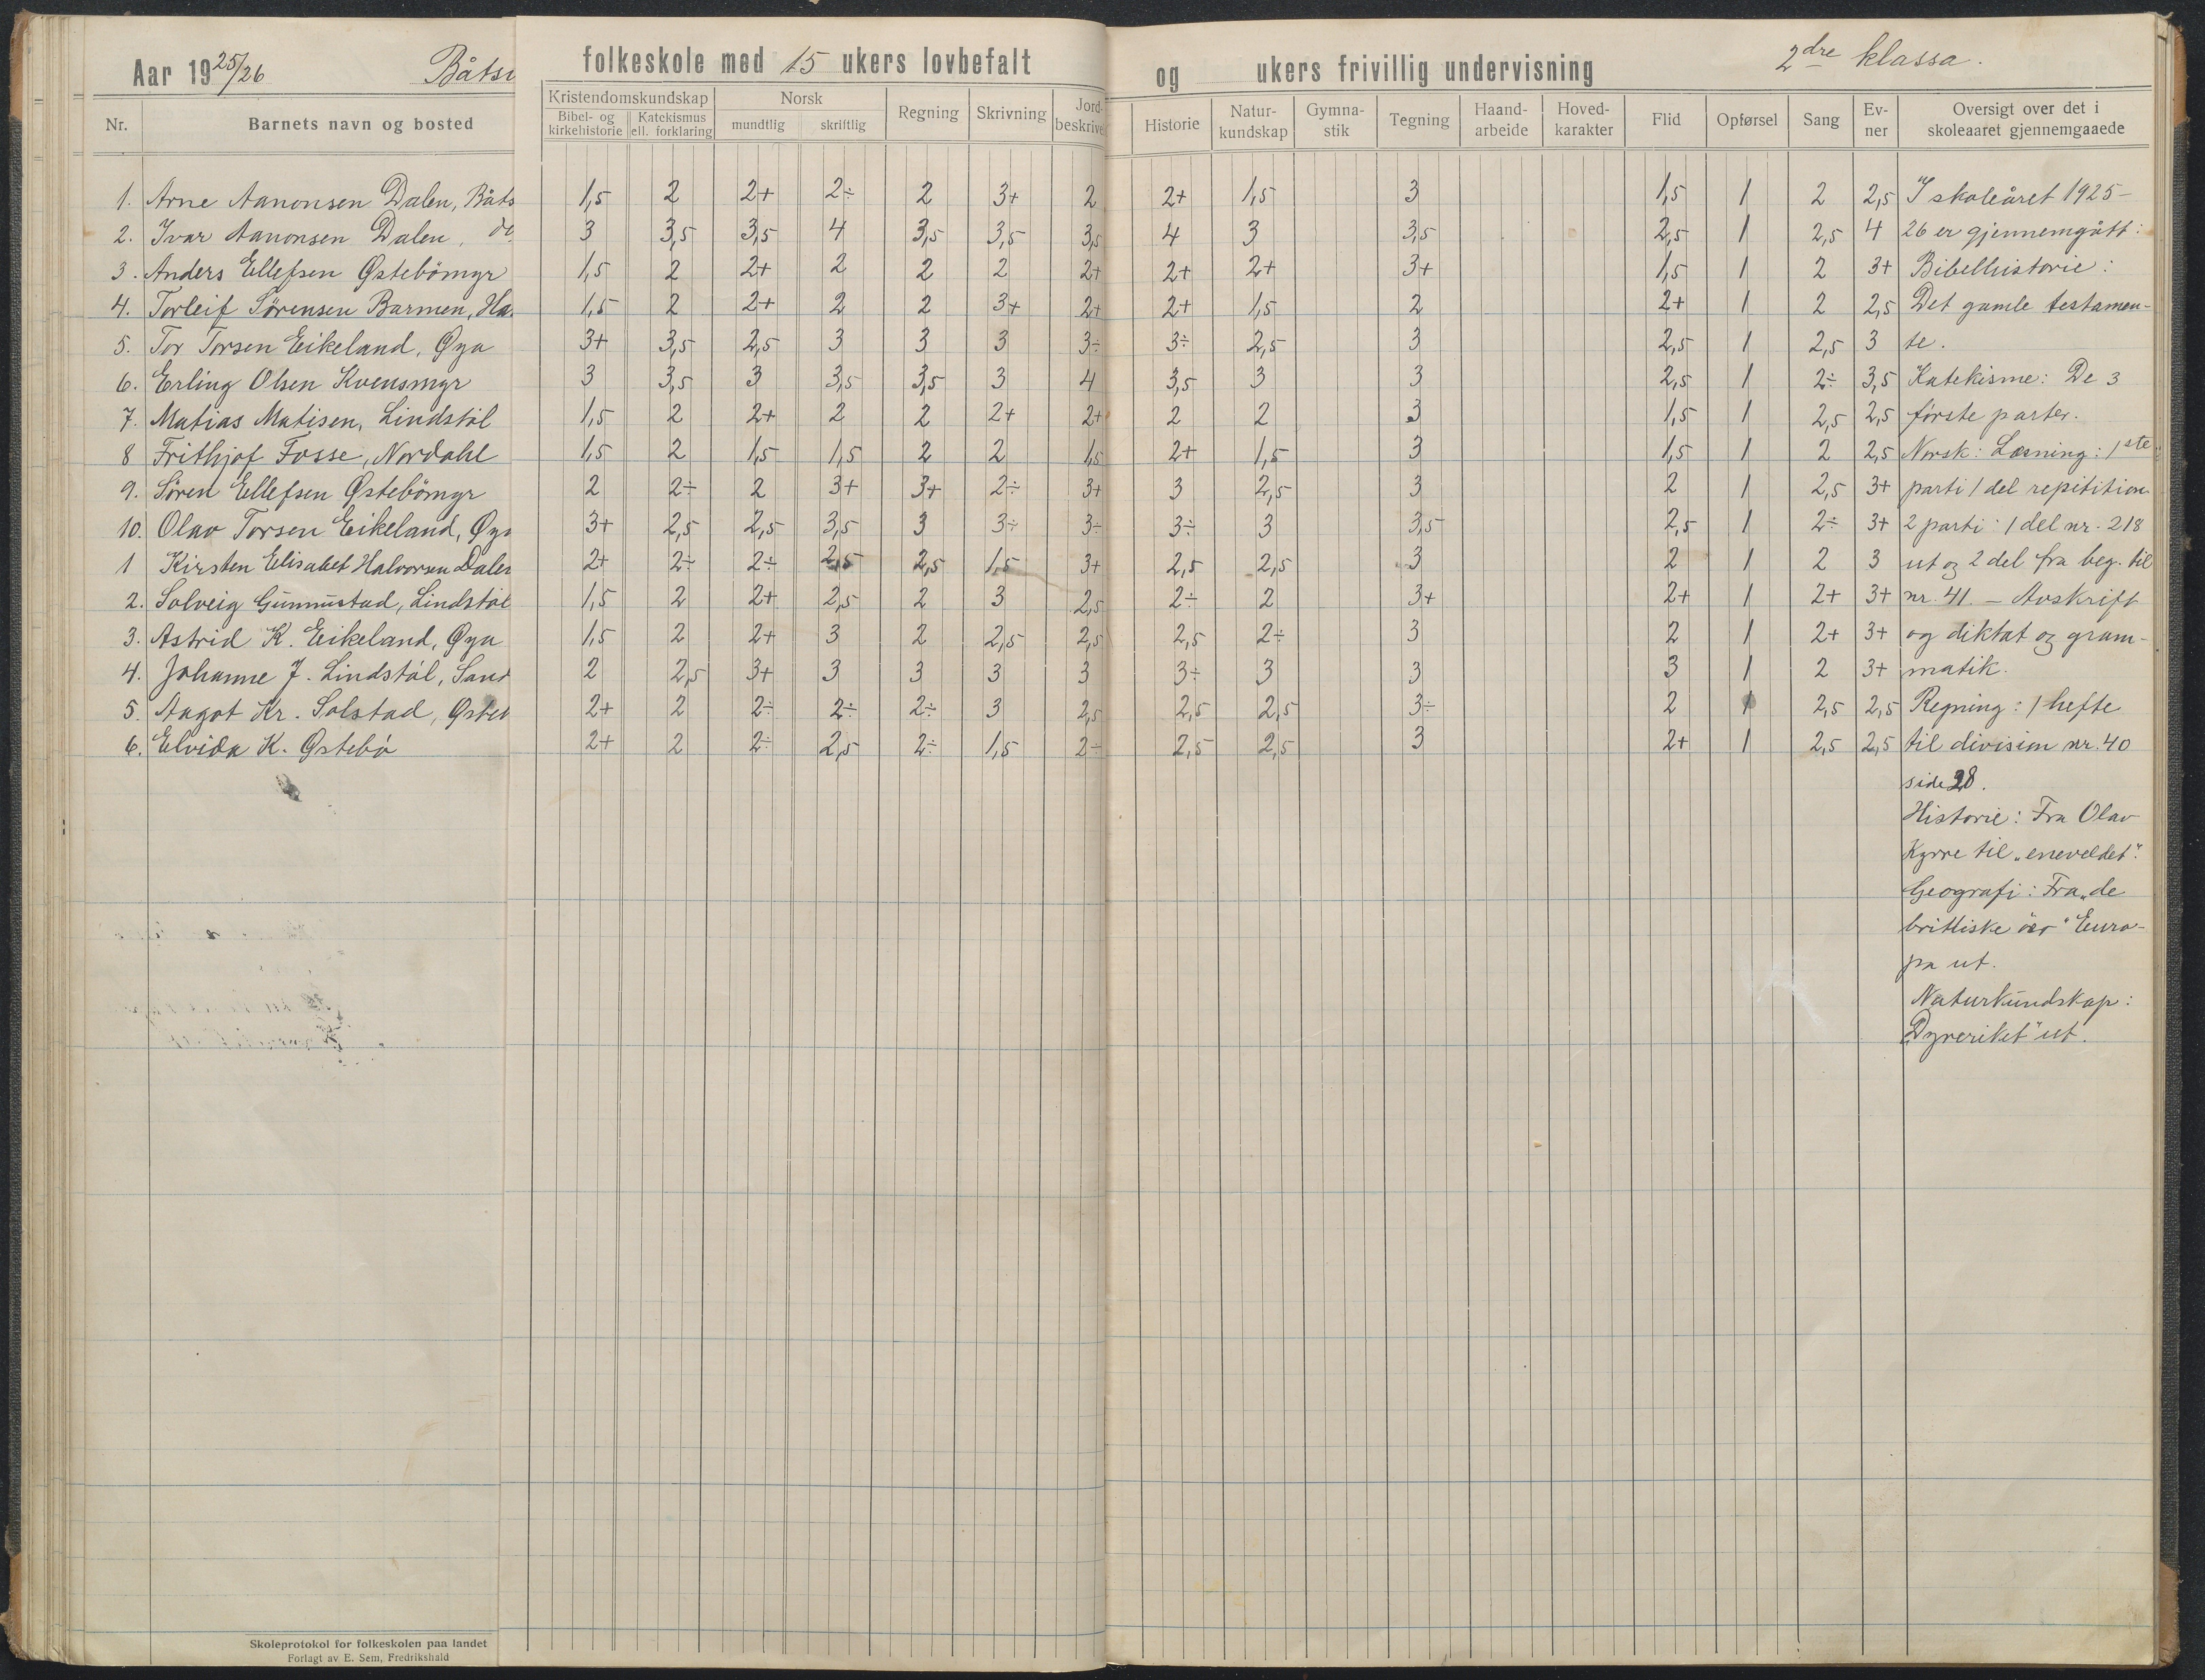 Aar 1925/26 Båtsi folkeskole med 15 ukers lovbefalt og ukers frivillig undervisning 2dre klassa.
Nr. Barnets navn og bosted Kristendomskundskap Bibel- og kirkehistorie Katekismus ell. forklaring Norsk mundtlig skriftlig Regning Skrivning Jord- beskrivel Historie Natur- kundskap Gymna- stik Tegning Haand- arbeide Hoved- karakter Flid Opførsel Sang Ev- ner Oversigt over det i skoleaaret gjennemgaaede
1. Arne Aanonsen Dalen, Båts 1,5 2 2+ 2÷ 2 3+ 2 2+ 1,5 3 1,5 1 2 2,5 I skoleåret 1925-
2. Ivar Aanonsen Dalen, do. 3 3,5 3,5 4 3,5 3,5 3,5 4 3 3,5 2,5 1 2,5 4 26 er gjennemgått:
3. Anders Ellefsen Østebömyr 1,5 2 2+ 2 2 2 2+ 2+ 2+ 3+ 1,5 1 2 3+ Bibelhistorie:
4. Torleif Sörensen Barmen, Ha. 1,5 2 2+ 2 2 3+ 2+ 2+ 1,5 2 2+ 1 2 2,5 Det gamle testamen-
5. Tor Torsen Eikeland, Øya 3+ 3,5 2,5 3 3 3 3÷ 3÷ 2,5 3 2,5 1 2,5 3 te.
6. Erling Olsen Kvensmyr 3 3,5 3 3,5 3,5 3 4 3,5 3 3 2,5 1 2÷ 3,5 Katekisme: De 3
7. Matias Matisen, Lindstöl 1,5 2 2+ 2 2 2+ 2+ 2 2 3 1,5 1 2,5 2,5 förste parter.
8 Frithjof Fosse, Nordahl 1,5 2 1,5 1,5 2 2 1,5 2+ 1,5 3 1,5 1 2 2,5 Norsk: Læsning: 1ste
9. Sören Ellefsen Østebömyr 2 2÷ 2 3+ 3+ 2÷ 3+ 3 2,5 3 2 1 2,5 3+ parti 1 del repitition
10. Olav Torsen Eikeland, Øya 3+ 2,5 2,5 3,5 3 3÷ 3÷ 3÷ 3 3,5 2,5 1 2÷ 3+ 2 parti: 1 del nr. 218
1 Kirsten Elisabet Halvorsen Dalen 2+ 2÷ 2÷ 2,5 2,5 1,5 3+ 2,5 2,5 3 2 1 2 3 ut og 2 del fra beg. til
2. Solveig Gunnustad, Lindstöl 1,5 2 2+ 2,5 2 3 2,5 2÷ 2 3+ 2+ 1 2+ 3+ nr. 41. – Avskrift
3. Astrid K. Eikeland, Øya 1,5 2 2+ 3 2 2,5 2,5 2,5 2÷ 3 2 1 2+ 3+ og diktat og gram-
4. Johanne J. Lindstöl, Sand 2 2,5 3+ 3 3 3 3 3÷ 3 3 3 1 2 3+ matik.
5. Aagot Kr. Solstad, Østeb 2+ 2 2÷ 2÷ 2÷ 3 2,5 2,5 2,5 3÷ 2 1 2,5 2,5 Regning: 1 hefte
6. Elvida K. Østebö 2+ 2 2÷ 2,5 2÷ 1,5 2÷ 2,5 2,5 3 2+ 1 2,5 2,5 til division nr. 40
side 28.
Historie: Fra Olav
Kyrre til „eneveldet".
Geografi: Fra „de
brittiske öer" Euro-
pa ut.
Naturkundskap:
„Dyreriket" ut.
Skoleprotokol for folkeskolen paa landet
Forlagt av E. Sem, Fredrikshald